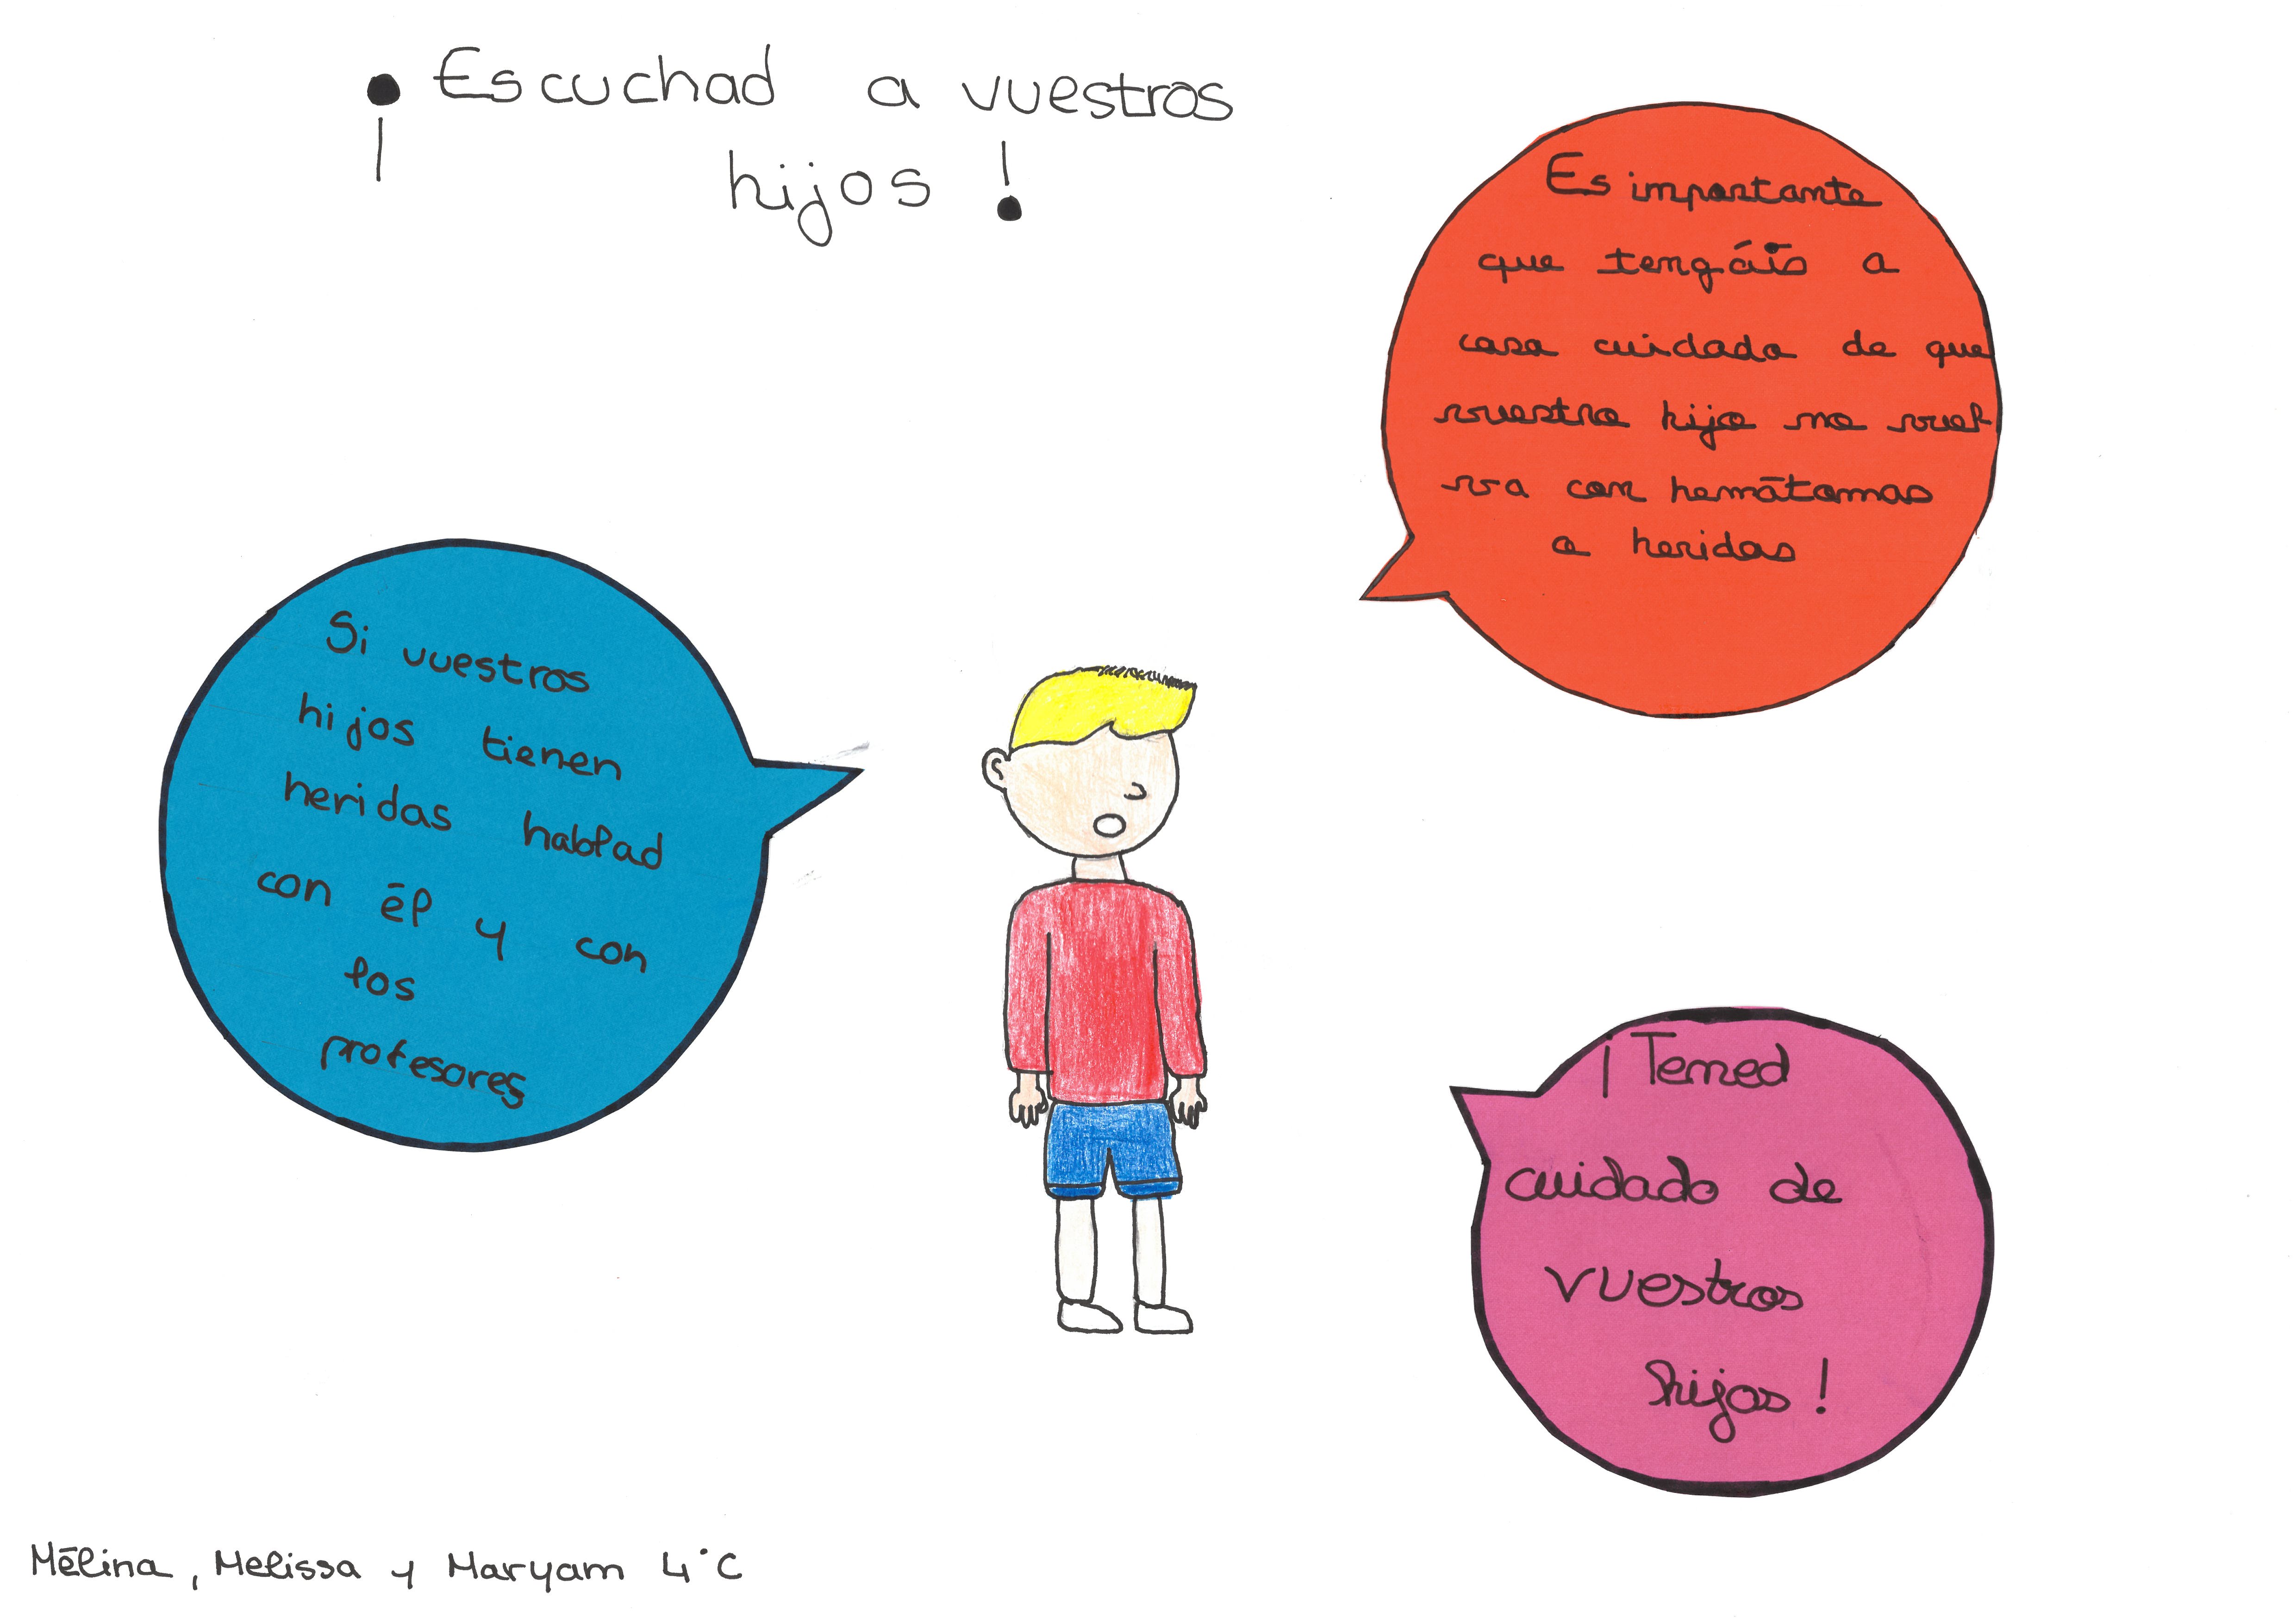 ¡Escuchad a vuestros
hijos!
Es importante
que tengáis a
casa cuidado de que
vuestro hijo no vuel
va con hemātomas
o heridas
Si vuestros
hijos tienen
heridas hablad
con él y con
los
profesores
¡Tened
cuidado de
vuestros
hijos!
Mélina, Melissa y Maryam 4°C